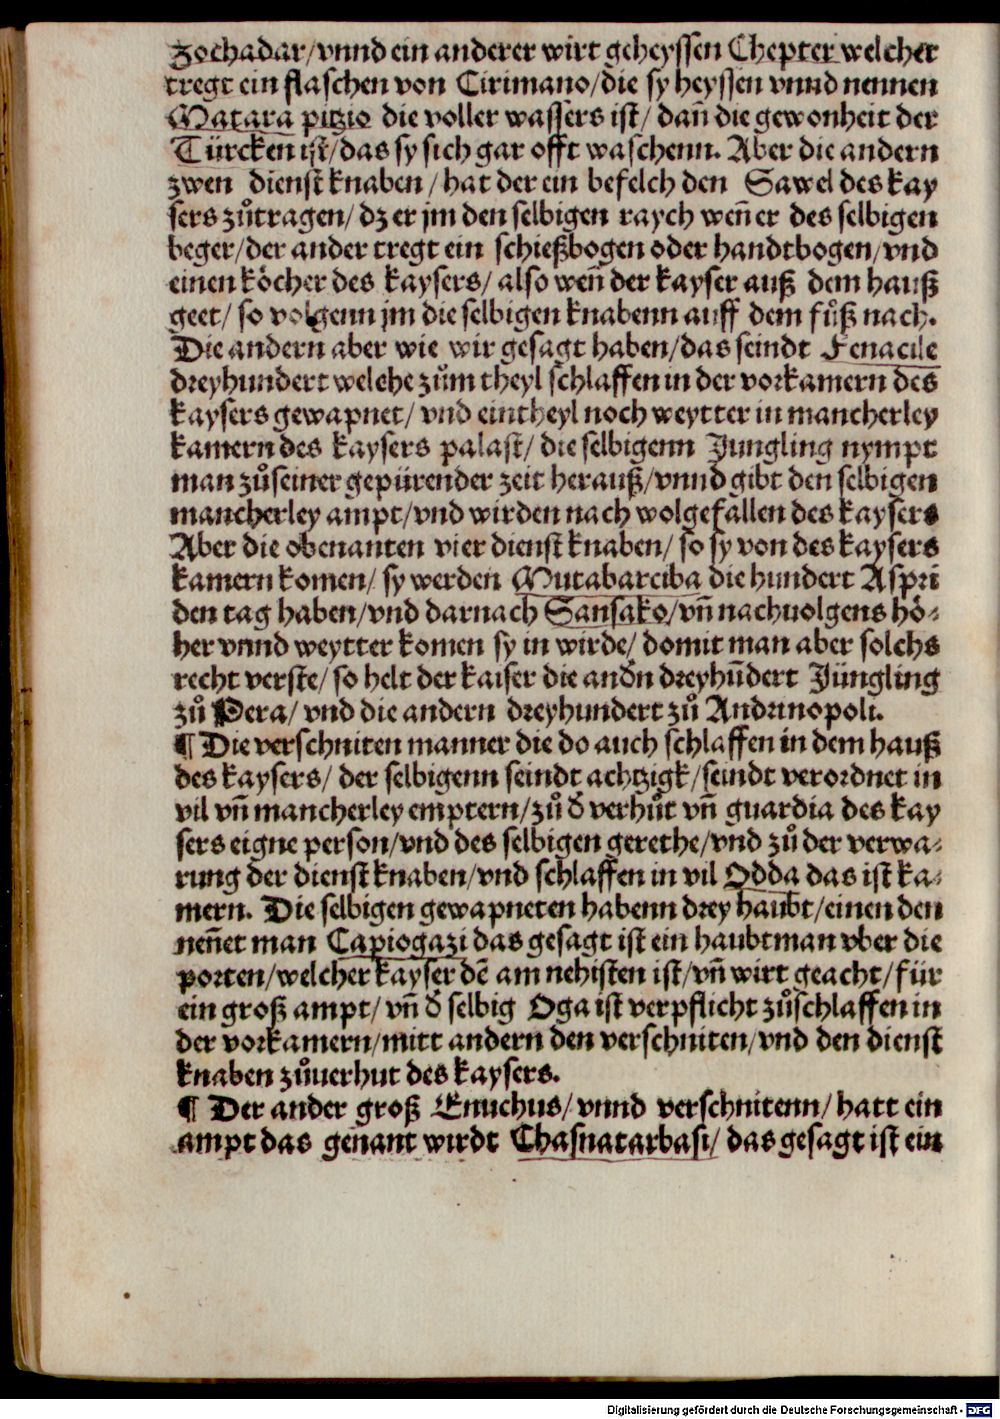 Zochadar/vnnd ein anderer wirt geheyssen Chepter welcher
tregt ein flaschen von Cirimano/die sy heyssen vnnd nennen
Matara pitzio die voller wassers ist/ dañ die gewonheit der
Türcken ist/das sy sich gar offt waschenn. Aber die andern
zwen dienst knaben/hat der ein befelch den Sawel des kay
sers zůtragen/ dz er jm den selbigen raych weñ er des selbigen
beger/der ander tregt ein schießbogen oder handtbogen/vnd
einen köcher des kaysers/ also weñ der kayser auß dem hauß
geet/ so volgenn jm die selbigen knabenn auff dem fůß nach.
Die andern aber wie wir gesagt haben/das seindt Fenacile
dreyhundert welche zům theyl schlaffen in der vorkamern des
kaysers gewapnet/ vnd ein theyl noch weytter in mancherley
kamern des kaysers palast/ die selbigenn Jungling nympt
man zů seiner gepürender zeit herauß/vnnd gibt den selbigen
mancherley ampt/vnd wirden nach wolgefallen des kaysers
Aber die obenanten vier dienst knaben/ so sy von des kaysers
kamern komen/ sy werden Mutabarciba die hundert Aspri
den tag haben/vnd darnach Sansako/vñ nachuolgens hö⸗
her vnnd weytter komen sy in wirde/ domit man aber solchs
recht verste/ so helt der kaiser die andn̄ dreyhūdert Jüngling
zů Pera/ vnd die andern dreyhundert zů Andrinopoli.
¶ Die verschniten manner die do auch schlaffen in dem hauß
des kaysers/ der selbigenn seindt achtzigk/seindt verordnet in
vil vñ mancherley emptern/zů d̄ verhůt vñ guardia des kay
sers eigne person/vnd des selbigen gerethe/vnd zů der verwa⸗
rung der dienst knaben/vnd schlaffen in vil Odda das ist ka⸗
mern. Die selbigen gewapneten habenn drey haubt/einen den
neñet man Capiogazi das gesagt ist ein haubtman vber die
porten/welcher kayser dē am nehisten ist/vñ wirt geacht/für
ein groß ampt/ vñ d̄ selbig Oga ist verpflicht zůschlaffen in
der vorkamern/mitt andern den verschniten/vnd den dienst
knaben zůuerhut des kaysers.
¶ Der ander groß Enuchus/ vnnd verschnitenn/ hatt ein
ampt das genant wirdt Chasnatarbasi/ das gesagt ist ein
Digitalisierung gefördert durch die Deutsche Forschungsgemeinschaft - DFG